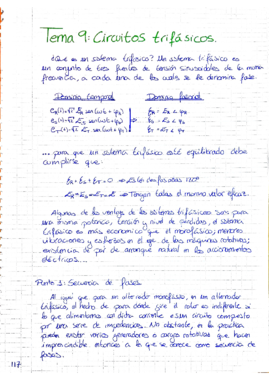 Tema 9: Circuitos trifásicos.
¿Qué es un sistema trifásico? Un sistema trifásico es
un conjunto de tres fuentes de tensión sinusoidales de la misma
frecuencia, a cada una de las cuales se le denomina fase.
Dominio temporal Dominio fasorial
... para que un sistema trifásico esté equilibrado debe
cumplirse que:
Están desfasados 120º
Tengan todas el mismo valor eficaz.
Algunas de las ventajas de los sistemas trifásicos son: para
una misma potencia, tensión y nivel de pérdidas, el sistema
trifásico es más económico que el monofásico; menores
vibraciones y esfuerzos en el eje de las máquinas rotativas;
existencia de par de arranque natural en los accionamientos
eléctricos...
Punto 1: Secuencia de fases.
Al igual que para un alternador monofásico, en un alternador
trifásico, el hecho de para dónde gire el rotor es indiferente si
lo que alimentamos con dicha corriente es un circuito compuesto
por una serie de impedancias. No obstante, en la práctica
pueden existir varios generadores o cargas rotativas que hacen
imprescindible entonces a lo que se conoce como secuencia de
fases.
117